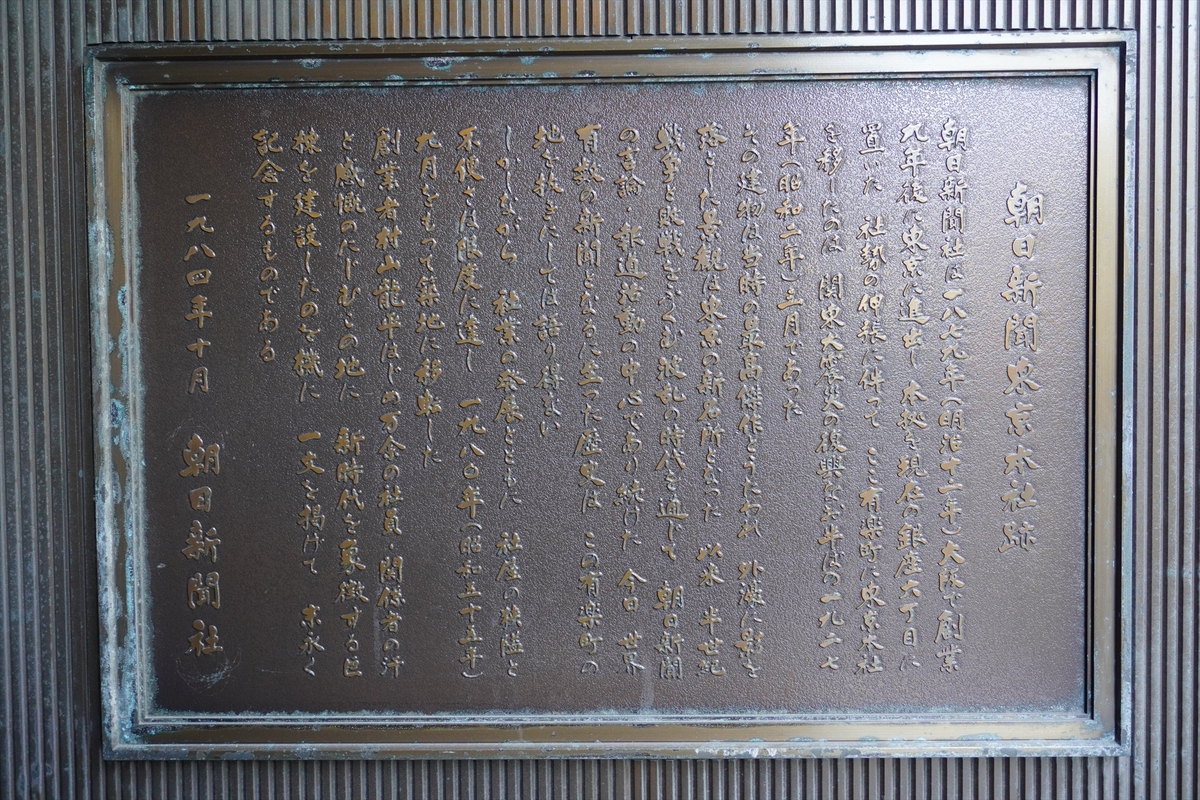 朝日新聞東京本社跡
朝日新聞社は一八七九年(明治十二年)大阪で創業
九年後に東京に進出し 本拠を現在の銀座六丁目に
置いた 社勢の伸張に伴って ここ有楽町に東京本社
を移したのは 関東大震災の復興なお半ばの一九二七
年(昭和二年)三月であった
その建物は当時の最高傑作とうたわれ 外濠に影を
落とした景観は東京の新名所となった 以来 半世紀
戦争と敗戦をふくむ波乱の時代を通じて 朝日新聞
の言論・報道活動の中心であり続けた 今日 世界
有数の新聞となるに至った歴史は この有楽町の
地を抜きにしては語り得ない
しかしながら 社業の発展とともに 社屋の狭隘と
不便さは限度に達し 一九八〇年(昭和五十五年)
九月をもって築地に移転した
創業者村山龍平はじめ万余の社員・関係者の汗
と感慨のにじむこの地に 新時代を象徴する巨
棟を建設したのを機に 一文を掲げて 末永く
記念するものである
一九八四年十月 朝日新聞社